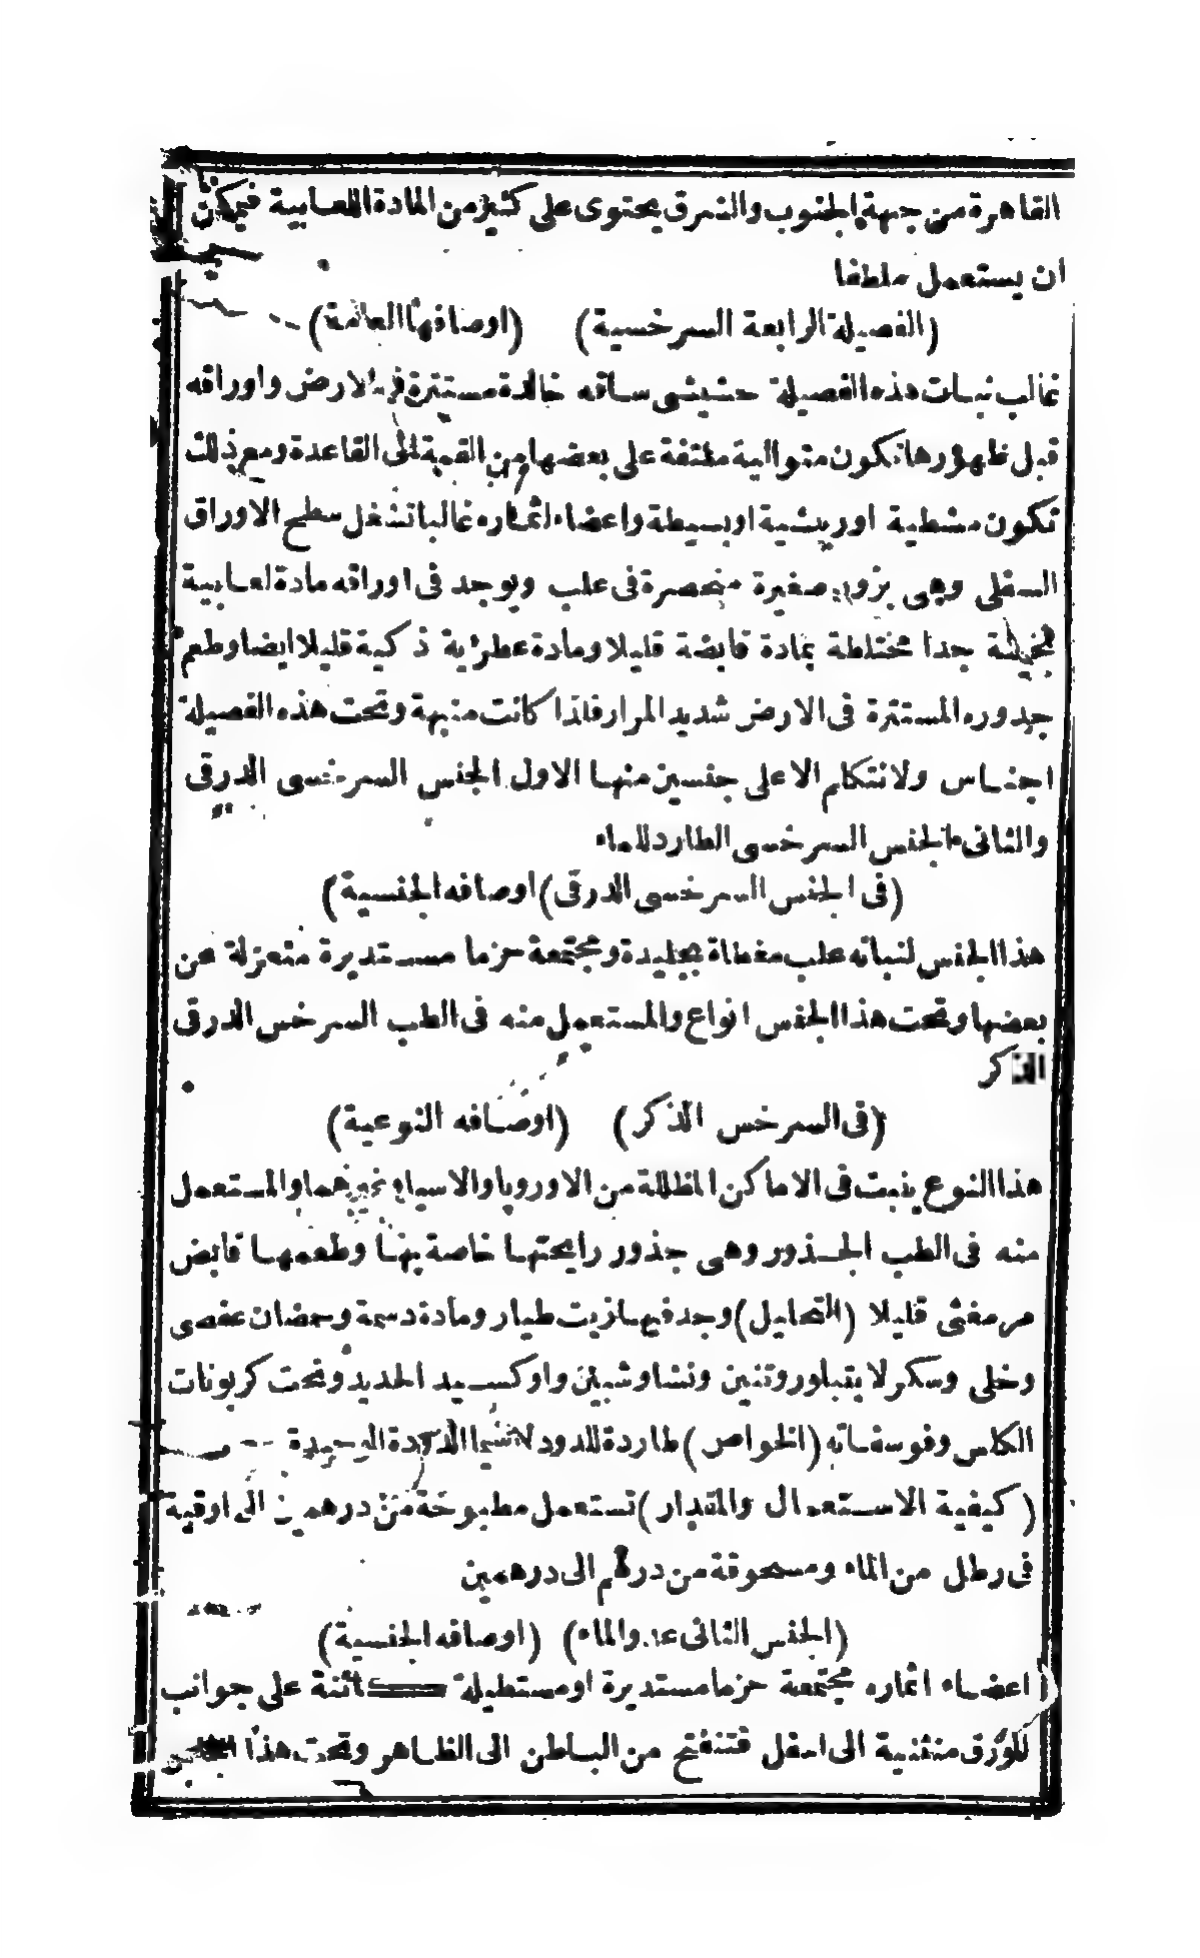 القاهرة من جهة الجنوب والشرق يحتوى على كثير من المادة اللعابية فيمكن
ان يستعمل ملطفا
(الفصيلة الرابعة السرخسية) (اوصافها العامة)
غالب نبات هذه الفصيلة حشيشى ساقه خالدة مستترة فى الارض واوراقه
قبل ظهورها تكون متوالية ملتفة على بعضها من القمة الى القاعدة ومع ذلك
تكون مشطية اوريشية اوبسيطة واعضاء اثماره غالبا تشغل سطح الاوراق
السفلى وهى بزور صغيرة منحصرة فى علب ويوجد فى اوراقه مادة لعابية
ثخينة جدا مختلطة بمادة قابضة قليلا ومادة عطرية ذكية قليلا ايضا وطعم
جدوره المستترة فى الارض شديد المرار فلذا كانت منبهة وتحت هذه الفصيلة
اجناس ولا نتكلم الا على جنسين منها الاول الجنس السرخسى الدرقى
والثانى الجنس السرخسى الطارد للماء
(فى الجنس السرخسى الدرقى) (اوصافه الجنسية)
هذا الجنس لنباته علب مغطاة بجليدة ومجتمعة حزما مستديرة منعزلة عن
بعضها وتحت هذا الجنس انواع والمستعمل منه فى الطب السرخس الدرقى
الذكر
(فى السرخس الذكر) (اوصافه النوعية)
هذا النوع ينبت فى الاماكن المظللة من الاوروپا والاسيا وغيرهما والمستعمل
منه فى الطب الجذور وهى جذور رايحتها خاصة بها وطعمها قابض
مر مغثى قليلا (التحاليل) وجد فيها زيت طيار ومادة دسمة وحمضان عفصى
وخلى وسكر لا يتبلور وتنين ونشا وشبين واوكسيد الحديد وتحت كربونات
الكلس وفوسفاته (الخواص) طاردة للدود لاسيما الدودة الوحيدة
(كيفية الاستعمال والمقدار) تستعمل مطبوخة من درهمين الى اوقية
فى رطل من الماء ومسحوقة من درهم الى درهمين
(الجنس الثانى عدو الماء) (اوصافه الجنسية)
اعضاء اثماره مجتمعة حزما مستديرة اومستطيلة كائنة على جوانب
للورق منثنية الى اسفل فتنفتح من الباطن الى الظاهر وتحت هذا الجنس